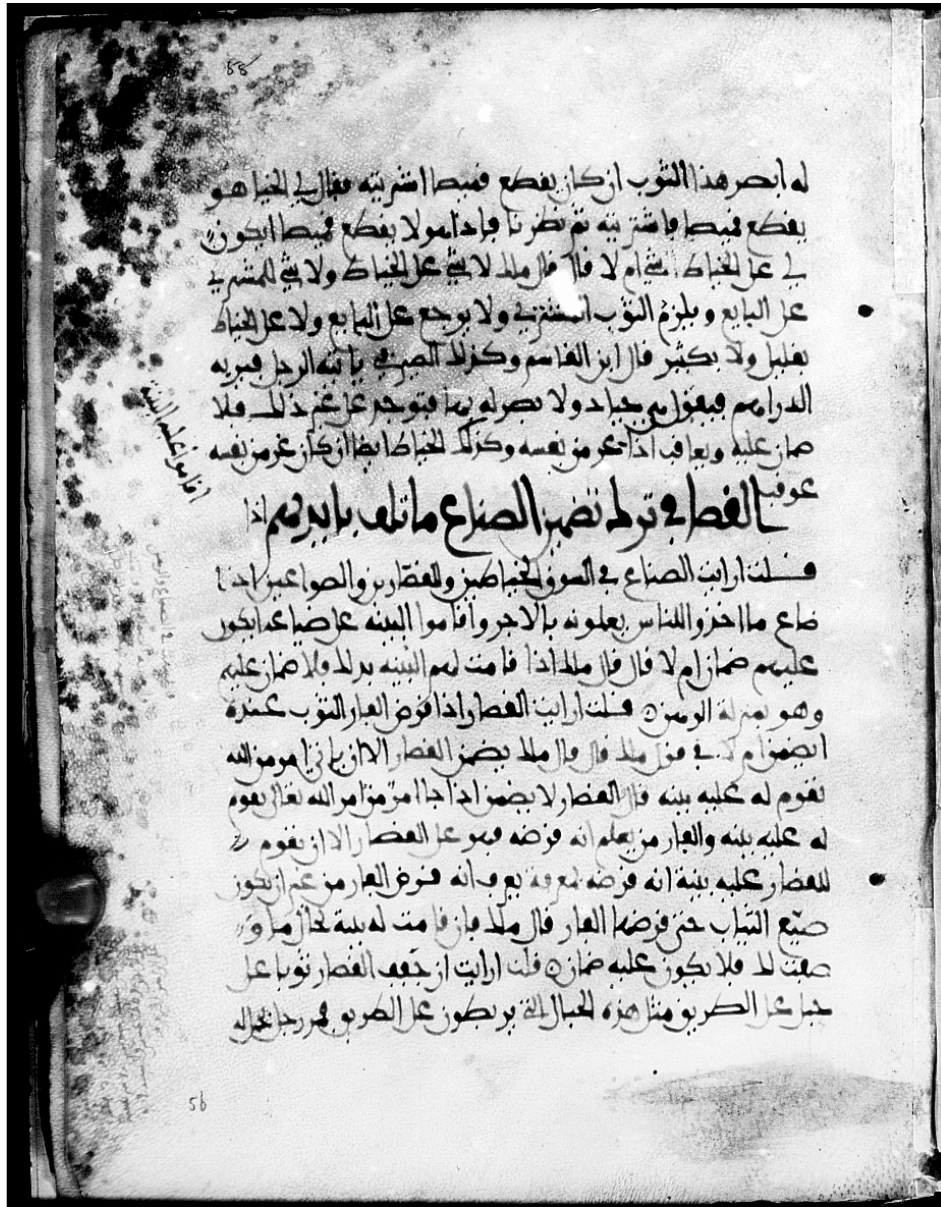 55
له ابصر هذا الثوب ان كان يقطع قميصا اشتريته فقال لي الخياط هو
يقطع قميصا فاشتريته ثم نظرنا فاذا هو لا يقطع قميصا ايكون
لي على الخياط شي ام لا قال قال ملك لا شي على الخياط ولا شي للمشتري
على البايع ويلزم الثوب المشتري ولا يرجع على البايع ولا على الخياط
بقليل ولا بكثير قال ابن القاسم وكذلك الصيرفي ياتيه الرجل فيريه
الدراهم فيقول هي جياد ولا بصر له بها فتوجد على غير ذلك فلا
ضمان عليه ويعاقب اذا غر من نفسه وكذلك الخياط ايضا ان كان غر من نفسه
عوقب
القضا في ترك تضمين الصناع ما تلف بايديهم اذا
اقاموا عليه البينة
قلت ارايت الصناع في السوق الخياطين والقصارين والصواغين اذا
ضاع ما اخذوا للناس يعملونه بالاجر واقاموا البينه على ضياعه ايكون
عليهم ضمان ام لا قال قال ملك اذا قامت لهم البينه بذلك فلا ضمان عليهم
وهو بمنزلة الرهن قلت ارايت القصار اذا قرض الفار الثوب عنده
ايضمن ام لا في قول ملك قال قال ملك يضمن القصار الا ان ياتي امر من الله
تقوم له عليه بينه قال القصار لا يضمن اذا جا امر من امر الله تعالى تقوم
له عليه بينه والفار من يعلم انه قرضه فهو على القصار الا ان تقوم
للقصار عليه بينة انه قرضه بمعرفة يعرف انه قرض الفار من غير ان يكون
ضيع الثياب حتى قرضها الفار قال ملك فان قامت له بينة بحال ما و
صفت لك فلا يكون عليه ضمان قلت ارايت ان جفف القصار ثوبا على
حبل على الطريق مثل هذه الحبال التي يربطون على الطريق فمر رجل بحمل له
56